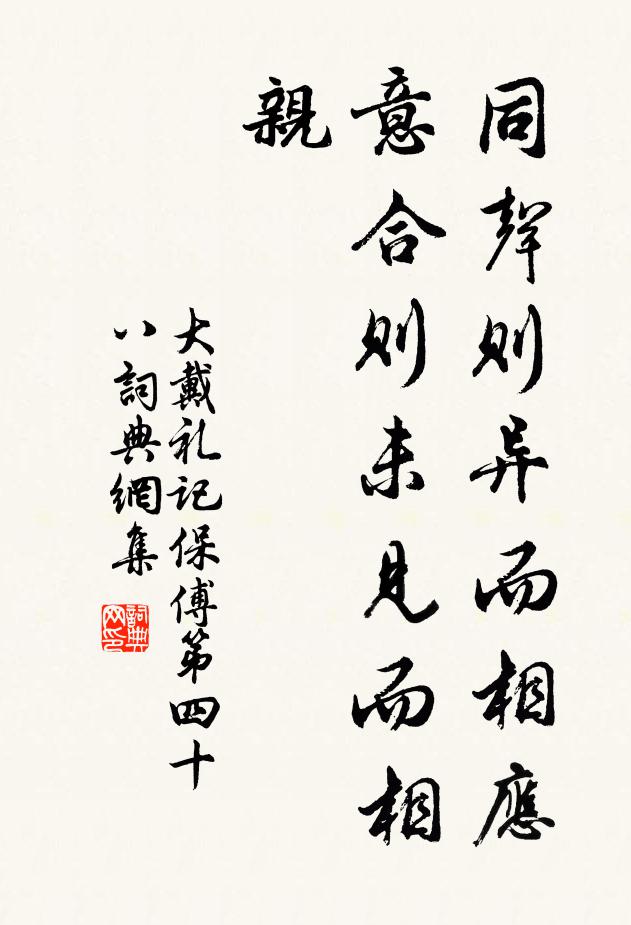 同聲則异而相應
意合則未見而相
親
大戴礼记保傅第四十
八詞典網集
詞典
网印